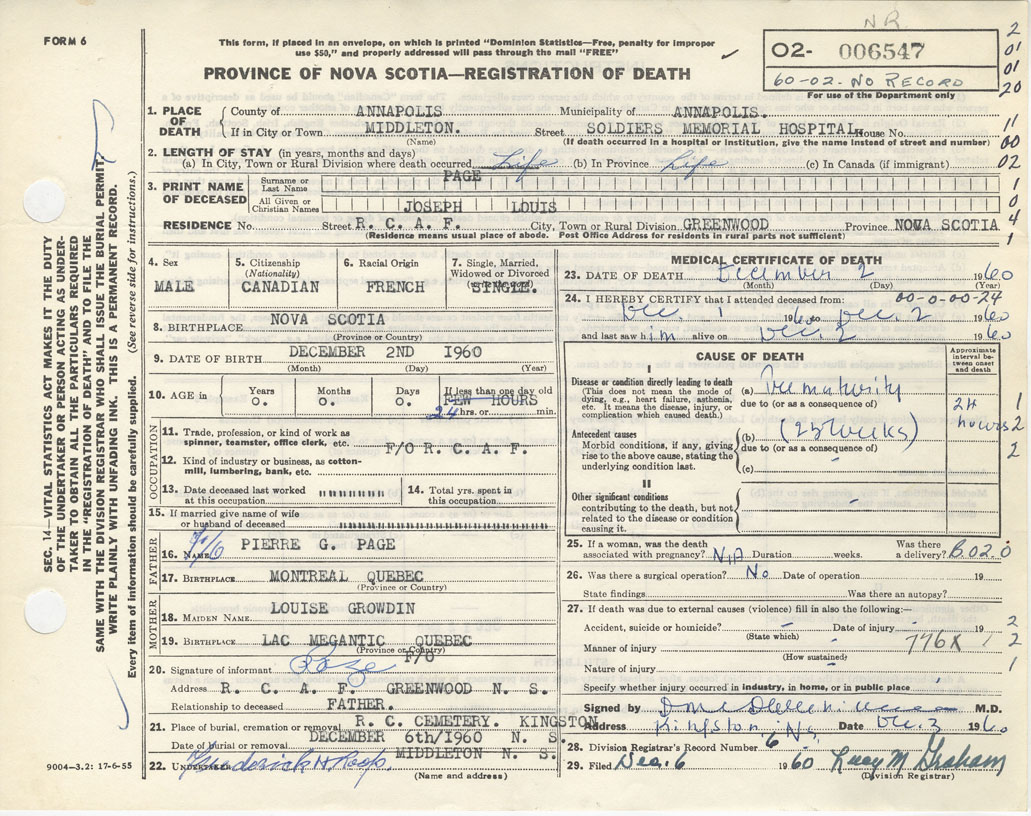 NR
FORM 6
This form, if placed in an envelope, on which is printed "Dominion Statistics—Free, penalty for improper
use $50," and properly addressed will pass through the mail "FREE"
02- 006547
60-02. NO RECORD
For use of the Department only
PROVINCE OF NOVA SCOTIA—REGISTRATION OF DEATH
2
01
01
20
11
00
02
1
0
4
1
1. PLACE OF DEATH
County of ANNAPOLIS Municipality of ANNAPOLIS.
If in City or Town MIDDLETON. Street SOLDIERS MEMORIAL HOSPITAL House No.
(Name) (If death occurred in a hospital or institution, give the name instead of street and number)
2. LENGTH OF STAY (in years, months and days)
(a) In City, Town or Rural Division where death occurred, Life (b) In Province Life (c) In Canada (if immigrant)
3. PRINT NAME OF DECEASED
Surname or Last Name PAGE
All Given or Christian Names JOSEPH LOUIS
RESIDENCE No. Street R. C. A. F. City, Town or Rural Division GREENWOOD Province NOVA SCOTIA
(Residence means usual place of abode. Post Office Address for residents in rural parts not sufficient)
4. Sex
MALE
5. Citizenship
(Nationality)
CANADIAN
6. Racial Origin
FRENCH
7. Single, Married,
Widowed or Divorced
(write the word)
SINGLE.
8. BIRTHPLACE NOVA SCOTIA
(Province or Country)
9. DATE OF BIRTH DECEMBER 2ND 1960
(Month) (Day) (Year)
10. AGE in
Years
0.
Months
0.
Days
0.
If less than one day old
FEW HOURS
24 hrs. or min.
OCCUPATION
11. Trade, profession or kind of work as
spinner, teamster, office clerk, etc. F/O R. C. A. F.
12. Kind of industry or business, as cotton-
mill, lumbering, bank, etc.
13. Date deceased last worked
at this occupation
14. Total yrs. spent in
this occupation
15. If married give name of wife
or husband of deceased
FATHER
16. Name F/O PIERRE G. PAGE
17. BIRTHPLACE MONTREAL QUEBEC
(Province or Country)
MOTHER
18. MAIDEN NAME LOUISE GROWDIN
19. BIRTHPLACE LAC MEGANTIC QUEBEC
(Province or Country)
F/O
20. Signature of informant
Address R. C. A. F. GREENWOOD N. S.
Relationship to deceased FATHER.
21. Place of burial, cremation or removal R. C. CEMETERY. KINGSTON
N. S.
Date of burial or removal DECEMBER 6th/1960
MIDDLETON N. S.
22. UNDERTAKER
(Name and address)
MEDICAL CERTIFICATE OF DEATH
23. DATE OF DEATH December 2 1960
(Month) (Day) (Year)
00-0-00-24
24. I HEREBY CERTIFY that I attended deceased from:
Dec. 1 1960 to Dec. 2 1960
and last saw him alive on Dec 2 1960
CAUSE OF DEATH
Approximate
interval be-
tween onset
and death
I
Disease or condition directly leading to death
(This does not mean the mode of
dying, e.g., heart failure, asthenia,
etc. It means the disease, injury, or
complication which caused death.)
(a) Prematurity
due to (or as a consequence of)
24
hours
Antecedent causes
Morbid conditions, if any, giving
rise to the above cause, stating the
underlying condition last.
(b) (25 weeks)
due to (or as a consequence of)
(c)
II
Other significant conditions
contributing to the death, but not
related to the disease or condition
causing it.
1
2
2
25. If a woman, was the death
associated with pregnancy? N/A Duration weeks. Was there
a delivery? B.02.0
26. Was there a surgical operation? No Date of operation 19
State findings Was there an autopsy?
27. If death was due to external causes (violence) fill in also the following:—
Accident, suicide or homicide? Date of injury 19
(State which)
Manner of injury
(How sustained)
776X
Nature of injury
Specify whether injury occurred in industry, in home, or in public place
2
1 2
1
Signed by M.D.
Address Kingston, N.S. Date Dec. 3 1960
28. Division Registrar's Record Number 6
29. Filed Dec. 6 1960 Lucy M Graham
(Division Registrar)
SEC. 14—VITAL STATISTICS ACT MAKES IT THE DUTY
OF THE UNDERTAKER OR PERSON ACTING AS UNDER-
TAKER TO OBTAIN ALL THE PARTICULARS REQUIRED
IN THE "REGISTRATION OF DEATH" AND TO FILE THE
SAME WITH THE DIVISION REGISTRAR WHO SHALL ISSUE THE BURIAL PERMIT.
WRITE PLAINLY WITH UNFADING INK. THIS IS A PERMANENT RECORD.
Every item of information should be carefully supplied. (See reverse side for instructions.)
9004-3.2: 17-6-55